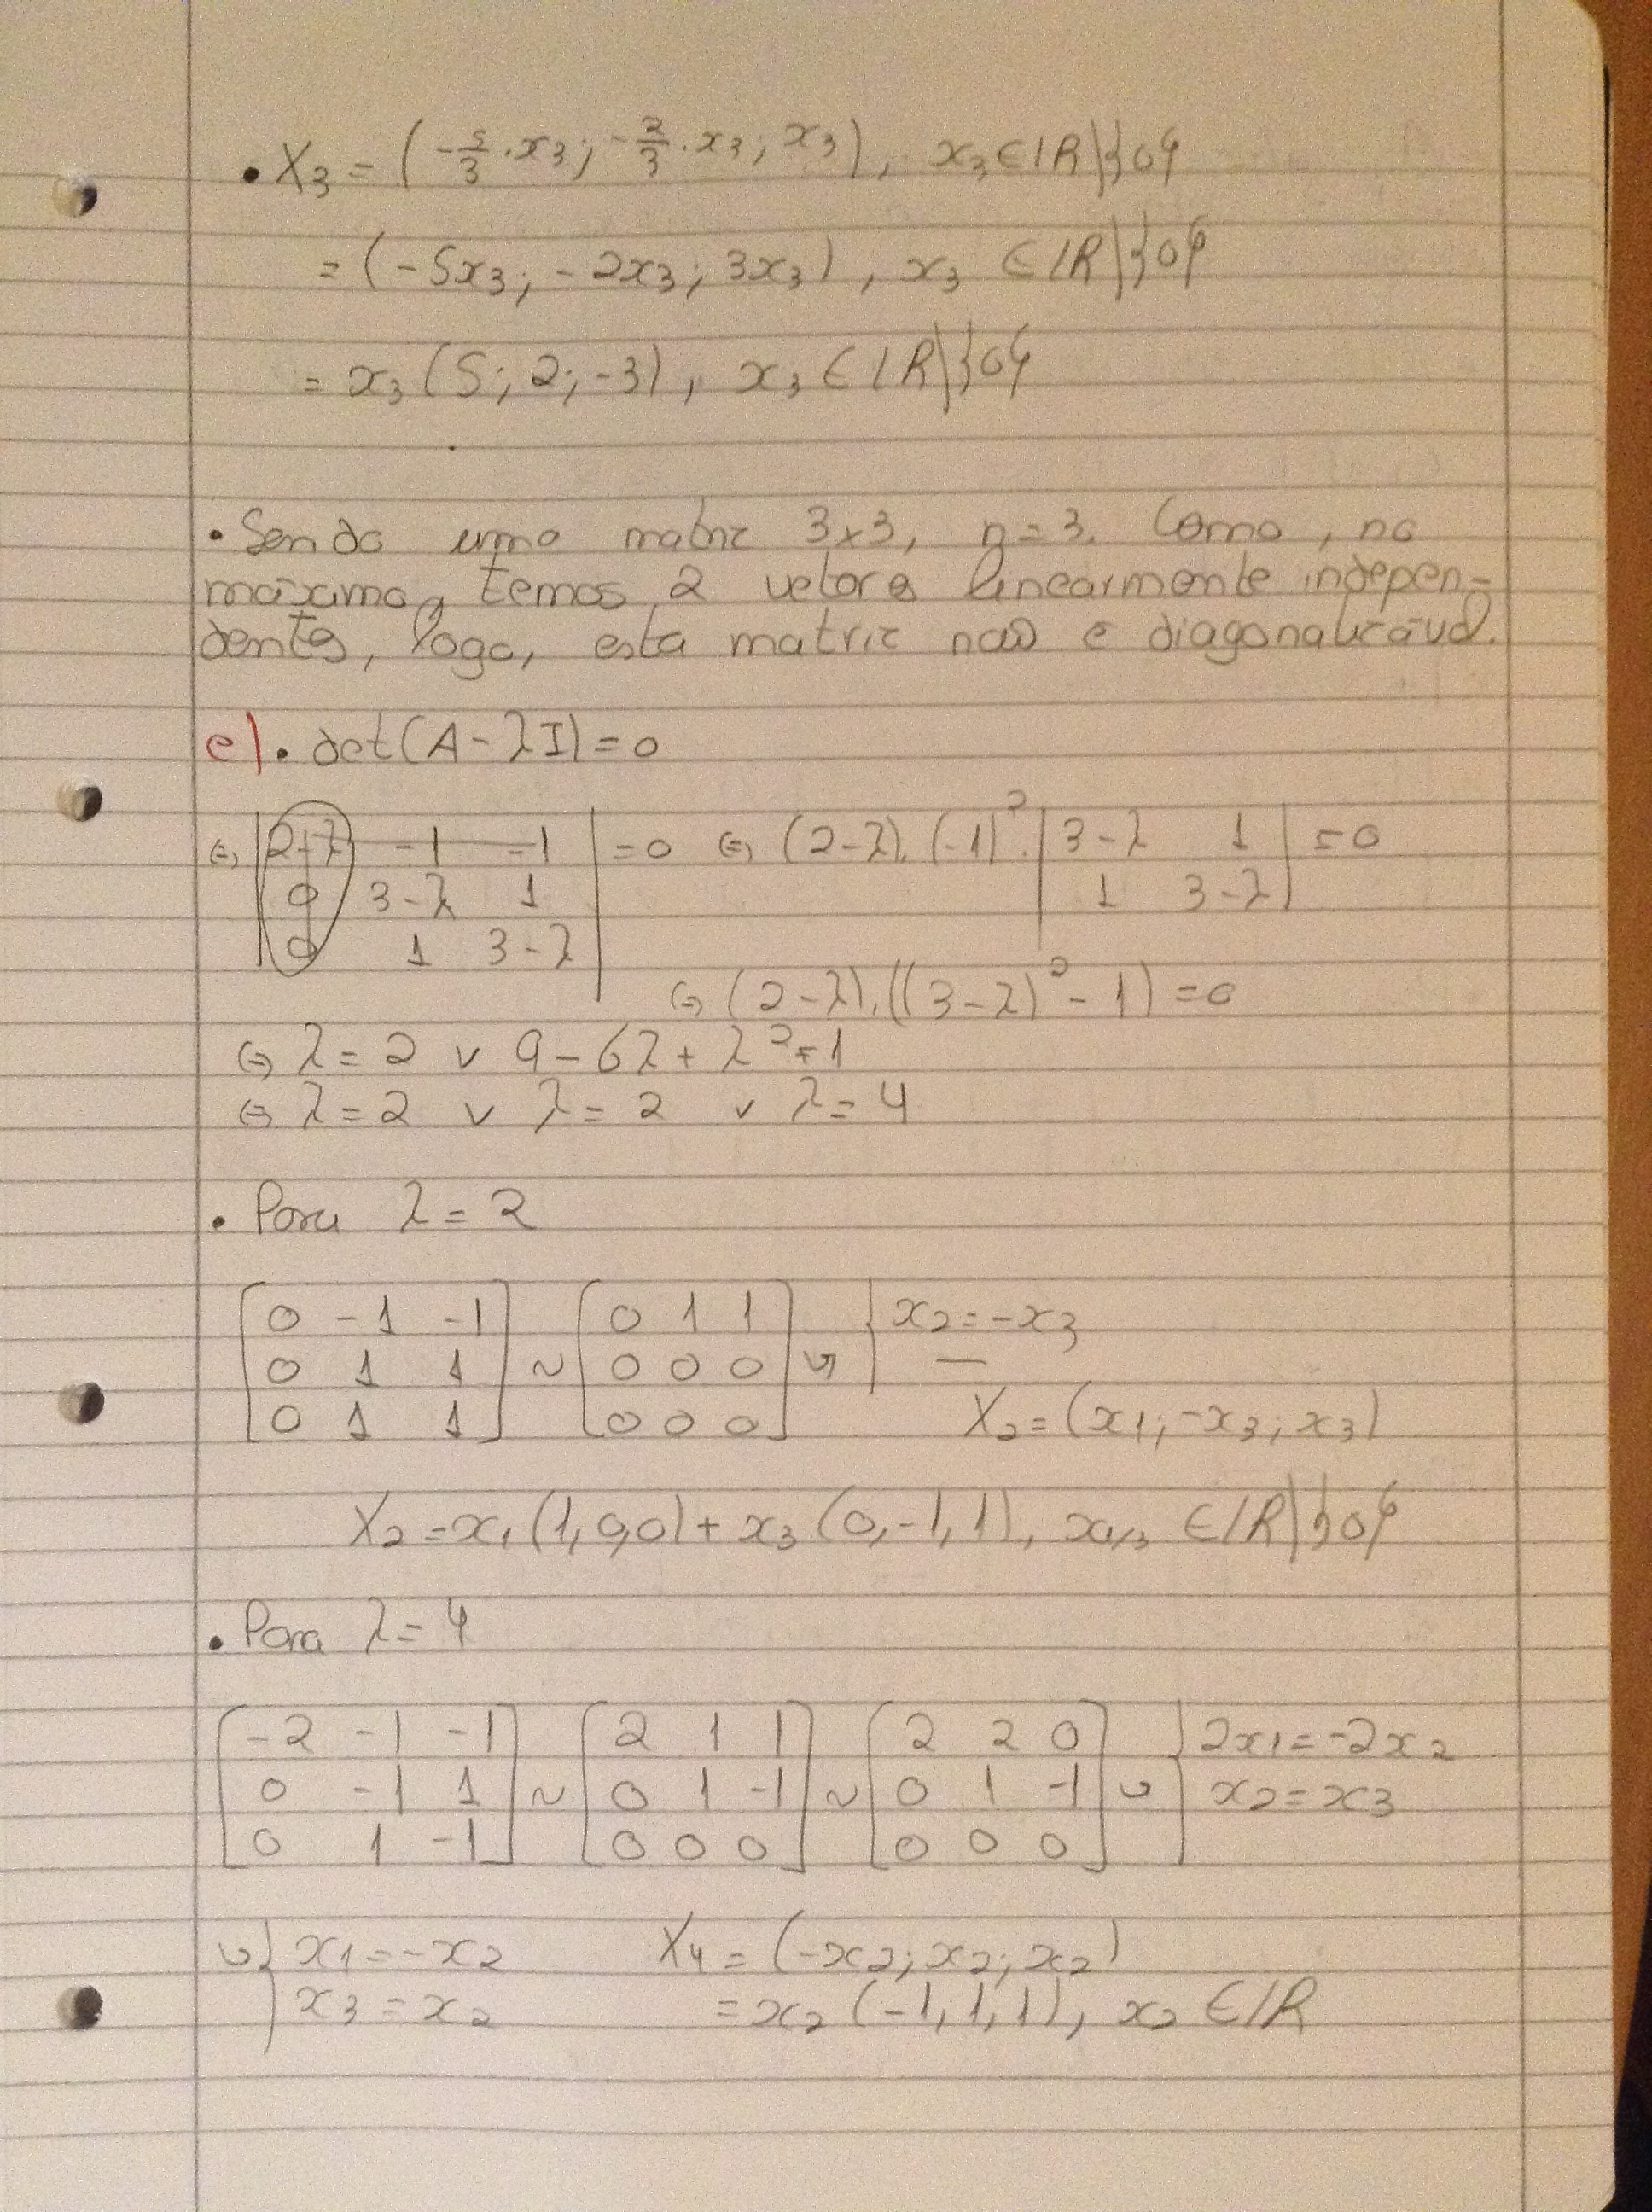 • X₃ = (-5/3 · x₃; -2/3 · x₃; x₃), x₃ ∈ ℝ\{0}
= (-5x₃; -2x₃; 3x₃), x₃ ∈ ℝ\{0}
= x₃ (5; 2; -3), x₃ ∈ ℝ\{0}
• Sendo uma matriz 3x3, n = 3. Como, no
máximo, temos 2 vetores linearmente indepen-
dentes, logo, esta matriz não é diagonalizável.
e) • det(A - λI) = 0
⇔ |2-λ -1 -1| = 0 ⇔ (2-λ).(-1)² . |3-λ 1| = 0
|0 3-λ 1| |1 3-λ|
|0 1 3-λ|
⇔ (2-λ).((3-λ)² - 1) = 0
⇔ λ = 2 ∨ 9 - 6λ + λ² = 1
⇔ λ = 2 ∨ λ = 2 ∨ λ = 4
• Para λ = 2
[0 -1 -1] [0 1 1] { x₂ = -x₃
[0 1 1] ~ [0 0 0] ↪ { —
[0 1 1] [0 0 0] X₂ = (x₁; -x₃; x₃)
X₂ = x₁ (1,0,0) + x₃ (0,-1,1), x₁,₃ ∈ ℝ\{0}
• Para λ = 4
[-2 -1 -1] [2 1 1] [2 2 0] { 2x₁ = -2x₂
[0 -1 1] ~ [0 1 -1] ~ [0 1 -1] ↪ { x₂ = x₃
[0 1 -1] [0 0 0] [0 0 0]
↪ { x₁ = -x₂ X₄ = (-x₂; x₂; x₂)
{ x₃ = x₂ = x₂ (-1,1,1), x₂ ∈ ℝ